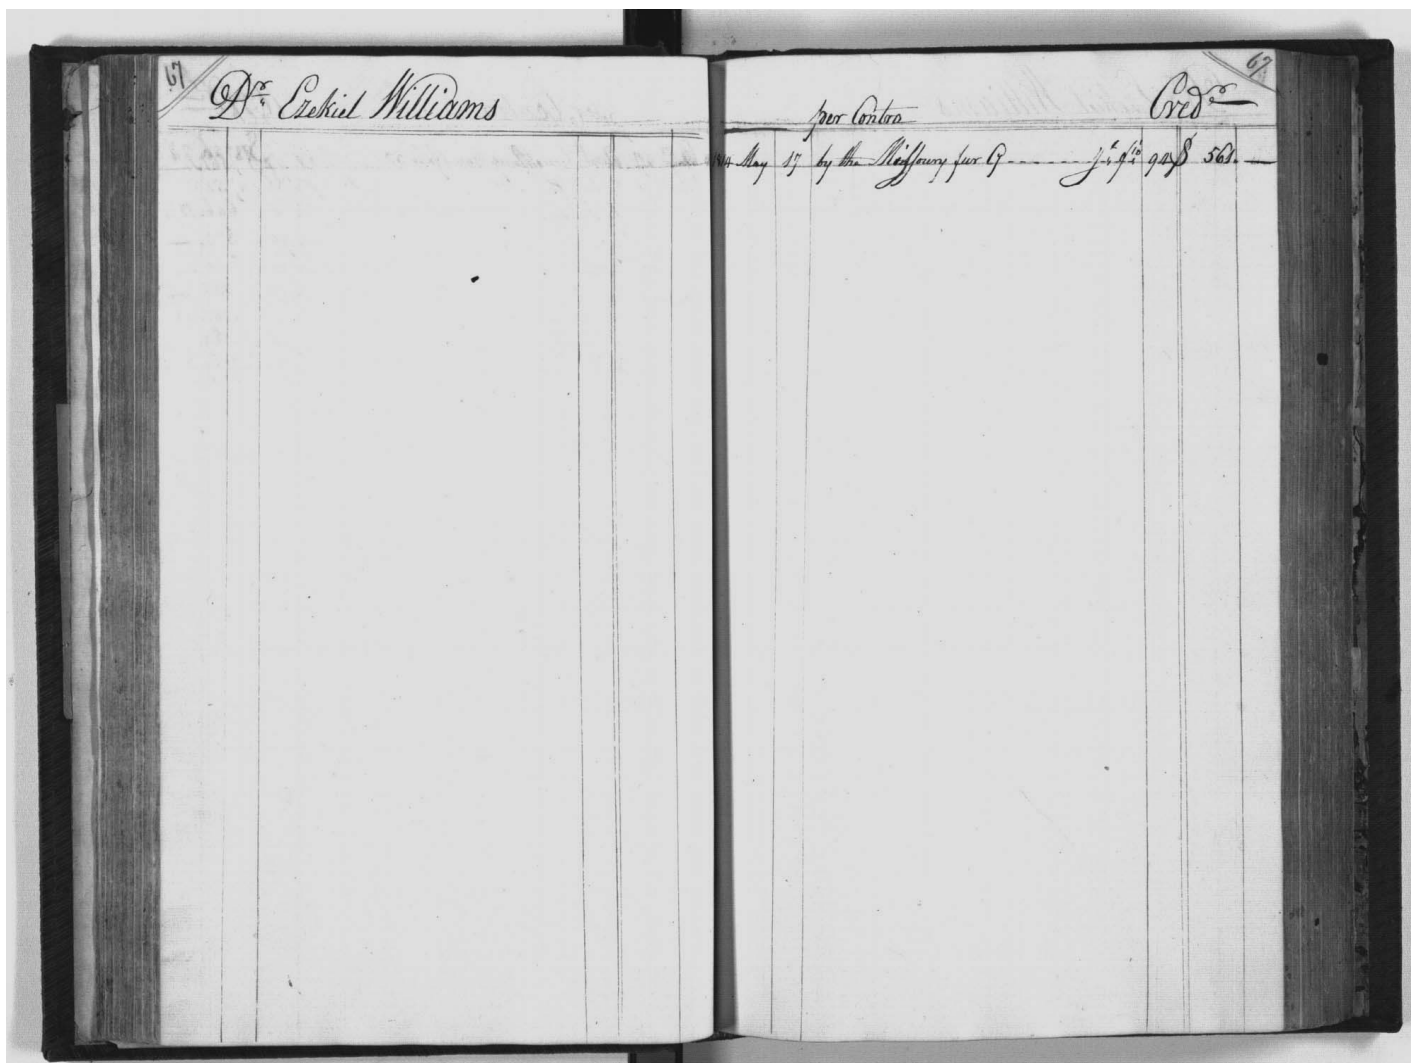 67
Dr. Ezekiel Williams
67
per Contra Credr
1814 May 17 by the Missoury fur Cy 94 $ 561. —